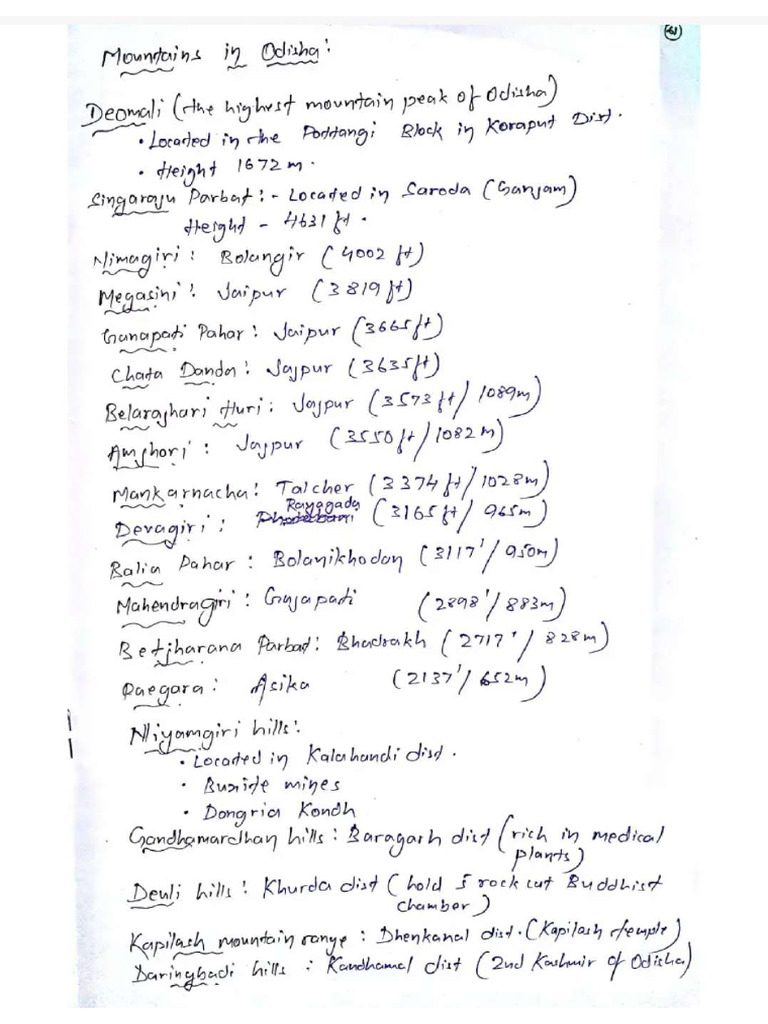 61
Mountains in Odisha:
Deomali (the highest mountain peak of Odisha)
• Located in the Pottangi Block in Koraput Dist.
• Height 1672 m.
Singaraju Parbat: - Located in Saroda (Ganjam)
Height - 4631 ft.
Nimagiri: Bolangir (4002 ft)
Megasini: Jaipur (3819 ft)
Ganapati Pahar: Jaipur (3665 ft)
Chata Danda: Jajpur (3635 ft)
Belarajhari Huri: Jajpur (3573 ft/ 1089m)
Amjhori: Jajpur (3550 ft/ 1082 m)
Mankarnacha: Talcher (3374 ft/ 1028m)
Devagiri: Rayagada (3165 ft/ 965m)
Balia Pahar: Bolanikhodan (3117'/ 950m)
Mahendragiri: Gajapati (2898'/ 883m)
Betjharana Parbat: Bhadrakh (2717'/ 828m)
Paegara: Asika (2137'/ 652m)
Niyamgiri hills:
• Located in Kalahandi dist.
• Buxite mines
• Dongria Kondh
Gandhamardhan hills: Baragarh dist (rich in medical
plants)
Deuli hills: Khurda dist (hold 5 rock cut Buddhist
chamber)
Kapilash mountain range: Dhenkanal dist. (Kapilash temple)
Daringbadi hills: Kandhamal dist (2nd Kashmir of Odisha)